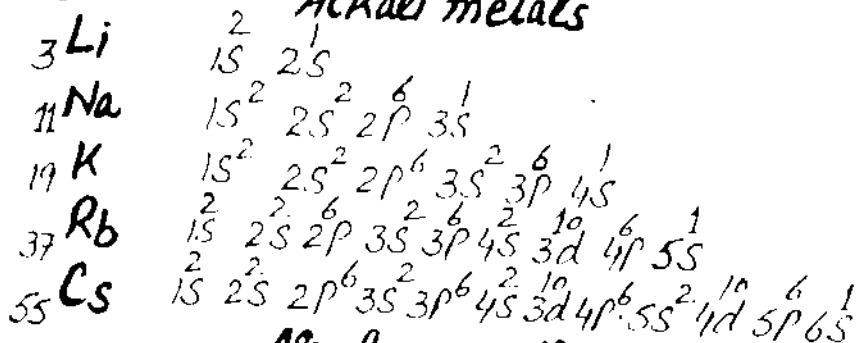 Alkali metals
₃Li 1s² 2s¹
₁₁Na 1s² 2s² 2p⁶ 3s¹
₁₉K 1s² 2s² 2p⁶ 3s² 3p⁶ 4s¹
₃₇Rb 1s² 2s² 2p⁶ 3s² 3p⁶ 4s² 3d¹⁰ 4p⁶ 5s¹
₅₅Cs 1s² 2s² 2p⁶ 3s² 3p⁶ 4s² 3d¹⁰ 4p⁶ 5s² 4d¹⁰ 5p⁶ 6s¹